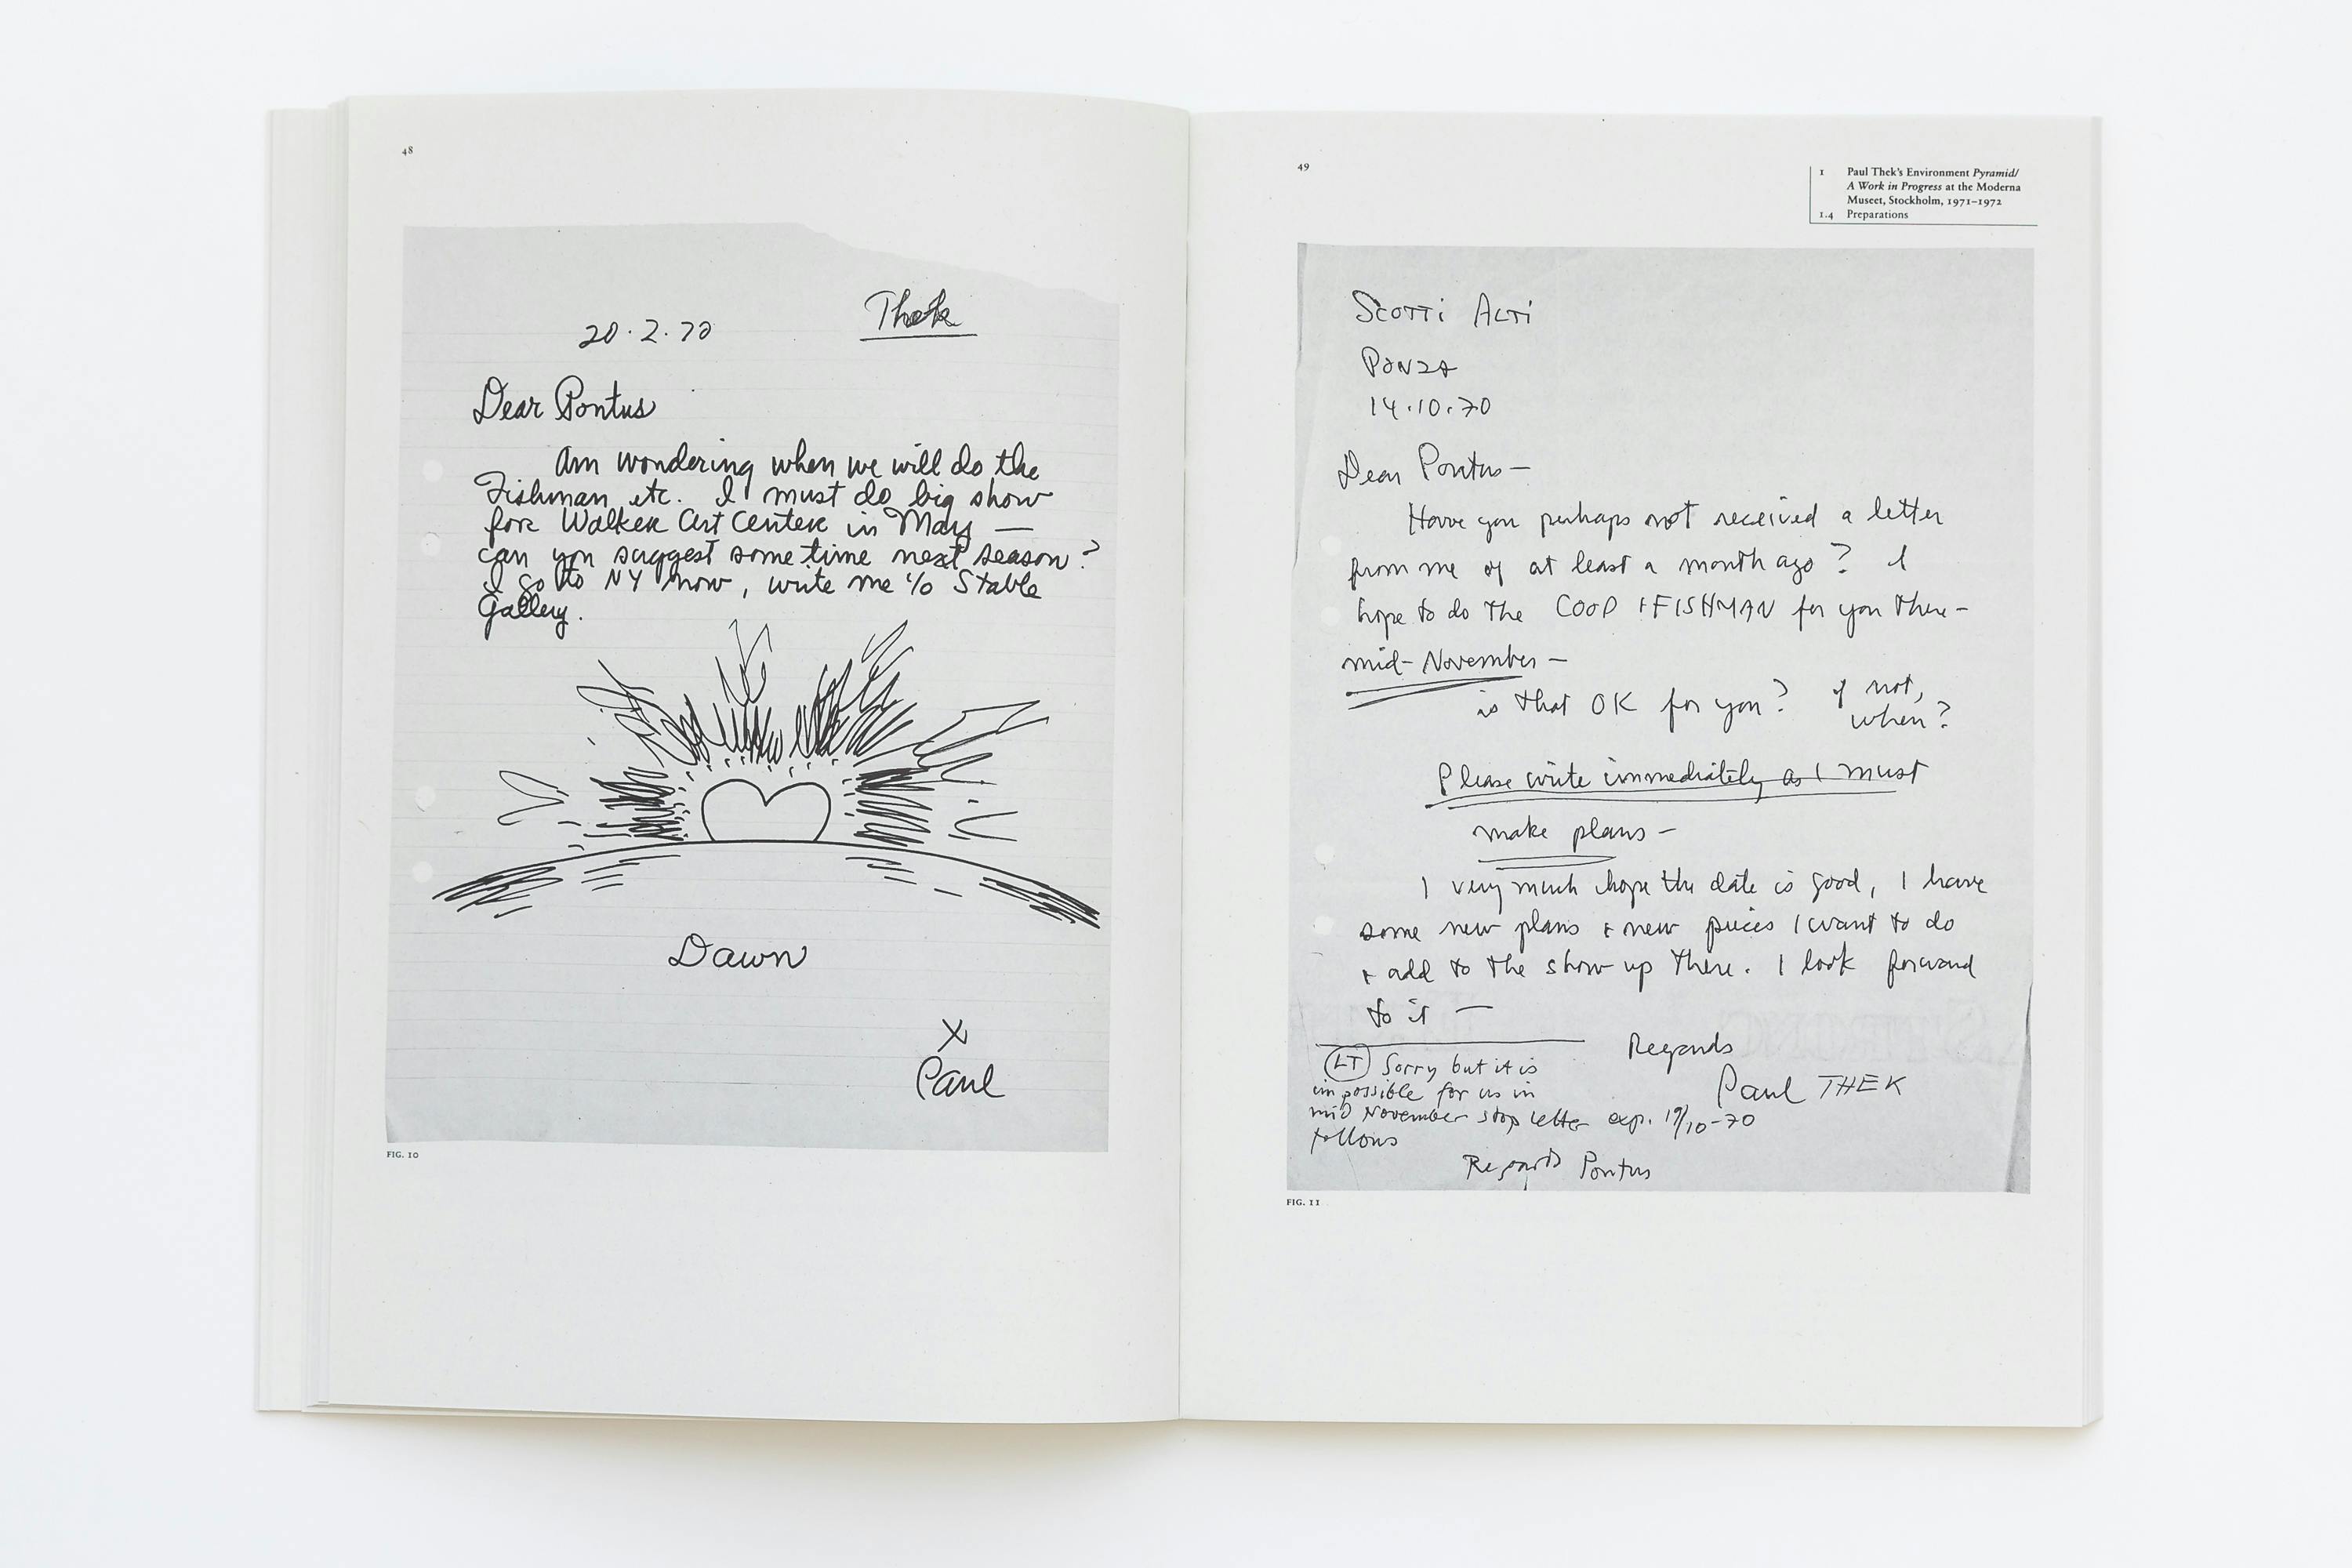 48
Thek
20.2.70
Dear Pontus
Am wondering when we will do the
Fishman etc. I must do big show
for Walker Art Center in May —
can you suggest some time next season?
I go to NY now, write me % Stable
Gallery.
Dawn
X
Paul
FIG. 10
49
1 Paul Thek's Environment Pyramid/
A Work in Progress at the Moderna
Museet, Stockholm, 1971–1972
1.4 Preparations
SCOTTi ACTi
PONZA
14.10.70
Dear Pontus —
Have you perhaps not received a letter
from me of at least a month ago? I
hope to do the COOP + FISHMAN for you there —
mid-November —
is that OK for you? if not,
when?
Please write immediately as I must
make plans —
I very much hope the date is good, I have
some new plans + new pieces I want to do
+ add to the show up there. I look forward
to it —
Regards
Paul THEK
LT Sorry but it is
impossible for us in
mid November stop letter exp. 19/10-70
follows
Regards Pontus
FIG. 11